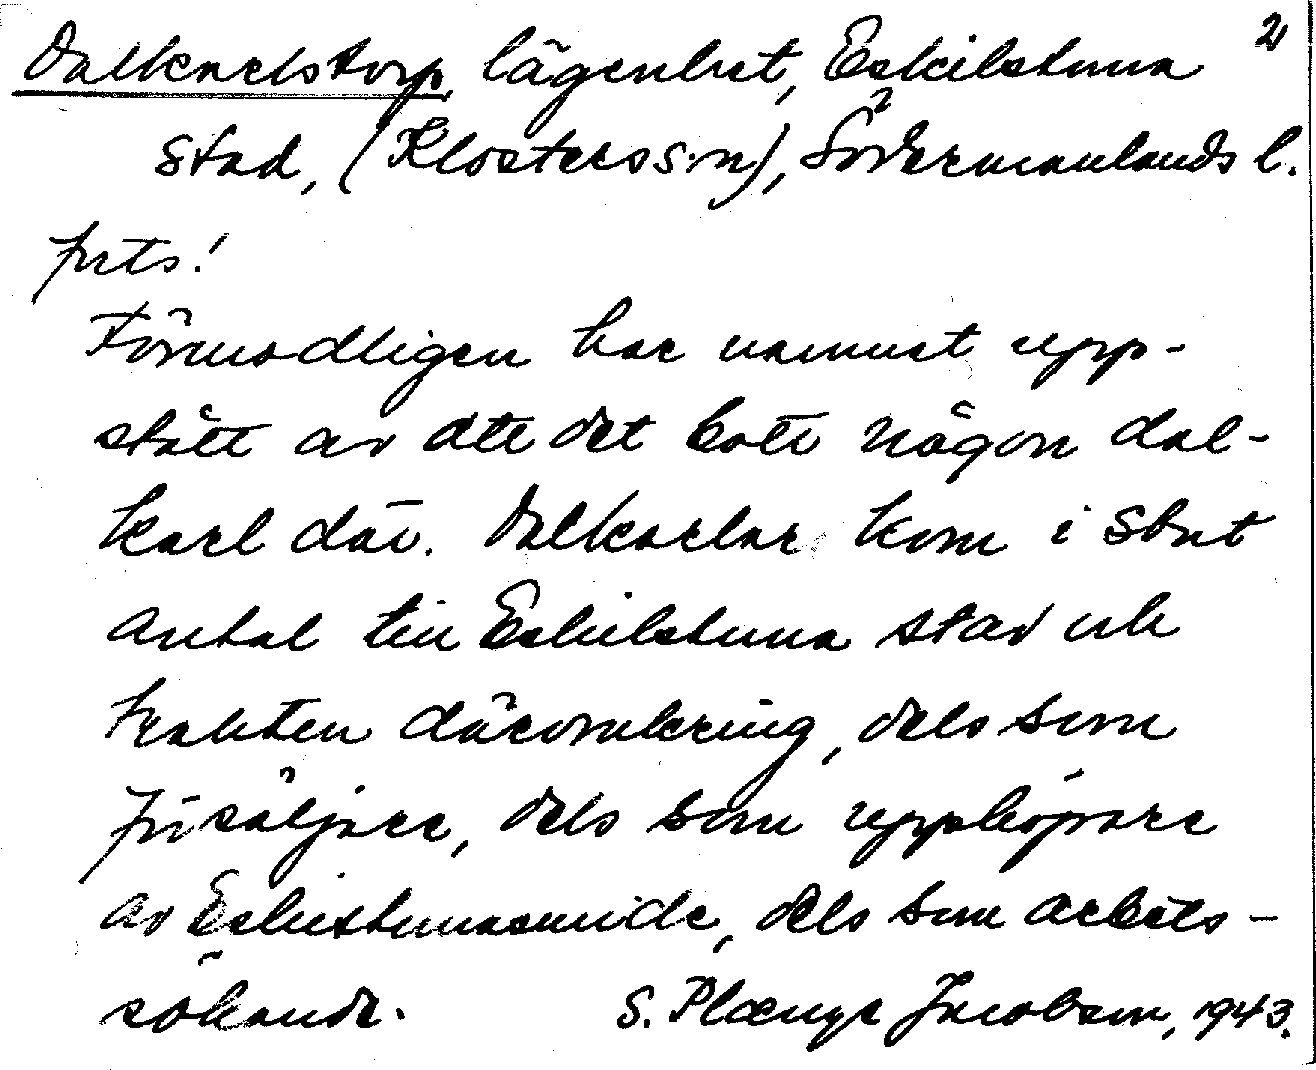 Dalkarlstorp, lägenhet, Eskilstuna 2
stad, (Klosters sn), Södermanlands l.
forts!
Förmodligen har namnet upp-
stått av att det bott någon dal-
karl där. Dalkarlar kom i stort
antal till Eskilstuna stad och
trakten däromkring, dels som
försäljare, dels som uppköpare
av Eskilstunasmide, dels som arbets-
sökande. S. Plænge Jacobson, 1943.